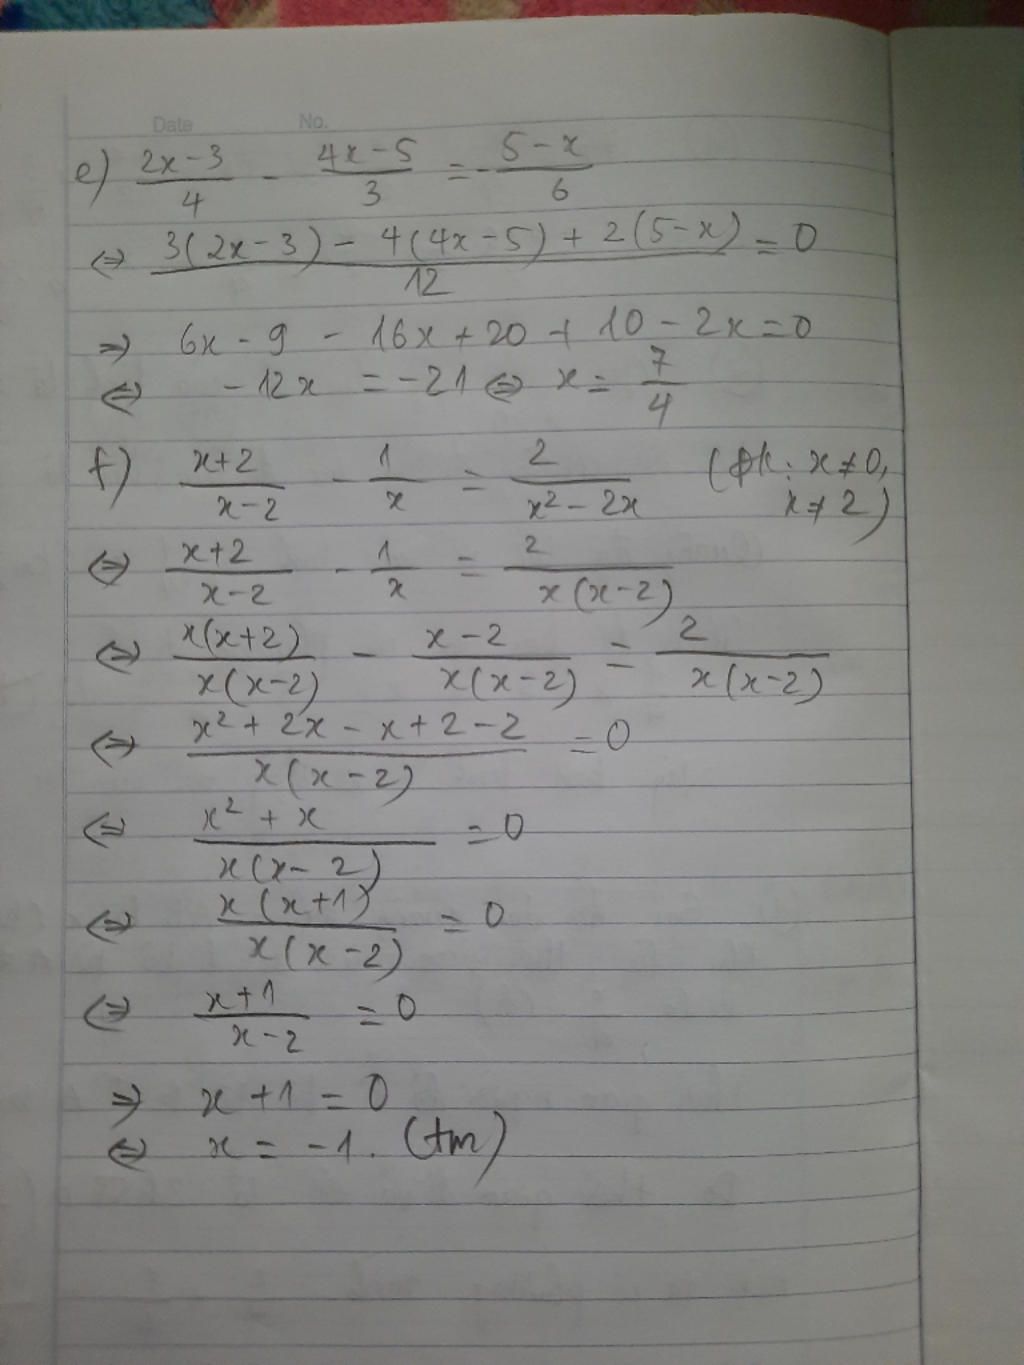 Date No.
e) (2x-3)/4 - (4x-5)/3 = -(5-x)/6
⇔ (3(2x-3) - 4(4x-5) + 2(5-x))/12 = 0
⇒ 6x - 9 - 16x + 20 + 10 - 2x = 0
⇔ -12x = -21 ⇔ x = 7/4
f) (x+2)/(x-2) - 1/x = 2/(x² - 2x) (đk: x ≠ 0, x ≠ 2)
⇔ (x+2)/(x-2) - 1/x = 2/(x(x-2))
⇔ (x(x+2))/(x(x-2)) - (x-2)/(x(x-2)) = 2/(x(x-2))
⇔ (x² + 2x - x + 2 - 2)/(x(x-2)) = 0
⇔ (x² + x)/(x(x-2)) = 0
⇔ (x(x+1))/(x(x-2)) = 0
⇔ (x+1)/(x-2) = 0
⇒ x + 1 = 0
⇔ x = -1. (tm)